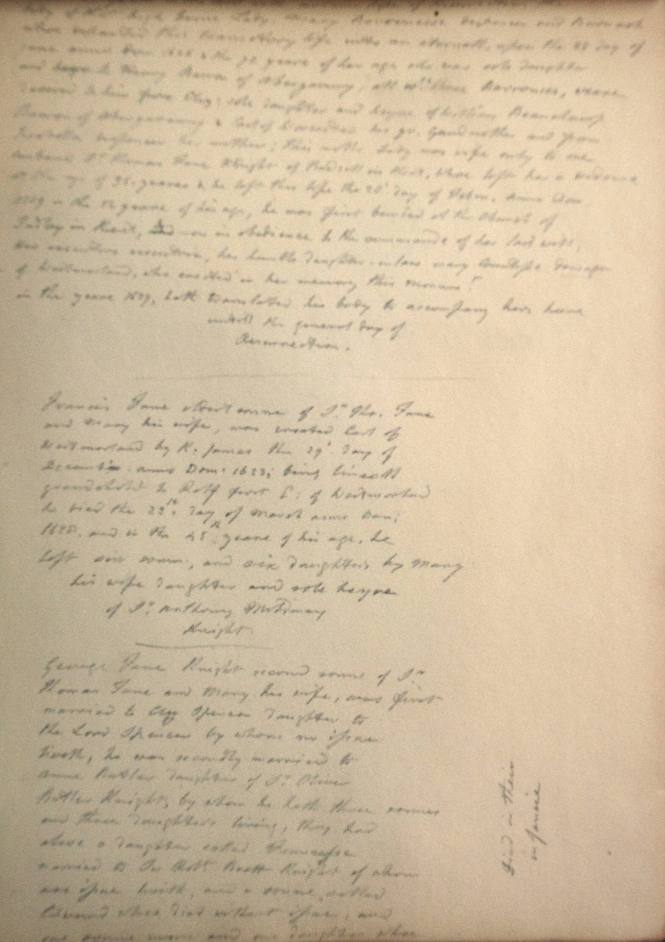 body of high borne Lady, Mary Baronesse Despencer and Burwash
whoe exhanged this transitory life with an eternall, upon the 28 day of
June anno Dom 1626 & the 72 yeare of her age who was sole daughter
and heyre to Henry Baron of Abergavenny; all wch three Barronies, weare
from Eliz: sole daughter and heyre of William Beauchamp
Baron of Abergavenny & Earl of Worcester his gr. Grandmother and from
Isabella Despencer her mother; this noble Lady was wife only to one
husband Sr Thomas Fane Knight of Badsell in Kent, whoe left her a widdowe
at the age of 35 yeares & he left this life the 20 day of anno Dom
in the yeare of his age, he was first buried at the Church of
Tudley in Kent, and now in obedience to the commands of her last will,
her executrix, her humble daughter in lawe Mary Countesse dowager
of Westmorland, who erected in her memory this monumt
in the yeare 1639, hath translated his body to accompany hers heere
untill the general day of
Resurrection.
Francis Fane eldest sonne of Sr Tho. Fane
and Mary his wife, was created Earl of
Westmorland by K. James the 29 day of
December anno Dom: 1623; being lineall
to Ralf first E: of Westmorland
he died the 23th day of March anno Dom:
1628, and in the 45th yeare of his age, he
left sonns, and six daughters by Mary
his wife daughter and sole heyre
of Sr Anthony Mildmay
Knight
George Fane Knight second sonne of Sr
Thomas Fane and Mary his wife, was first
married to Eliz Spencer daughter to
the Lord Spencer by whom no issue
liveth, he was secondly married to
Anne Butler daughter of Sr Oliver
Butler Knight, by whom he hath three sonnes
and three daughters living, they had
alsoe a daughter called
married to Sr Robt Brett Knight of whom
noe issue liveth, and a sonne, called
Edward whoe died without issue; and
one sonne more and one daughter whoe
Died in their
infancie